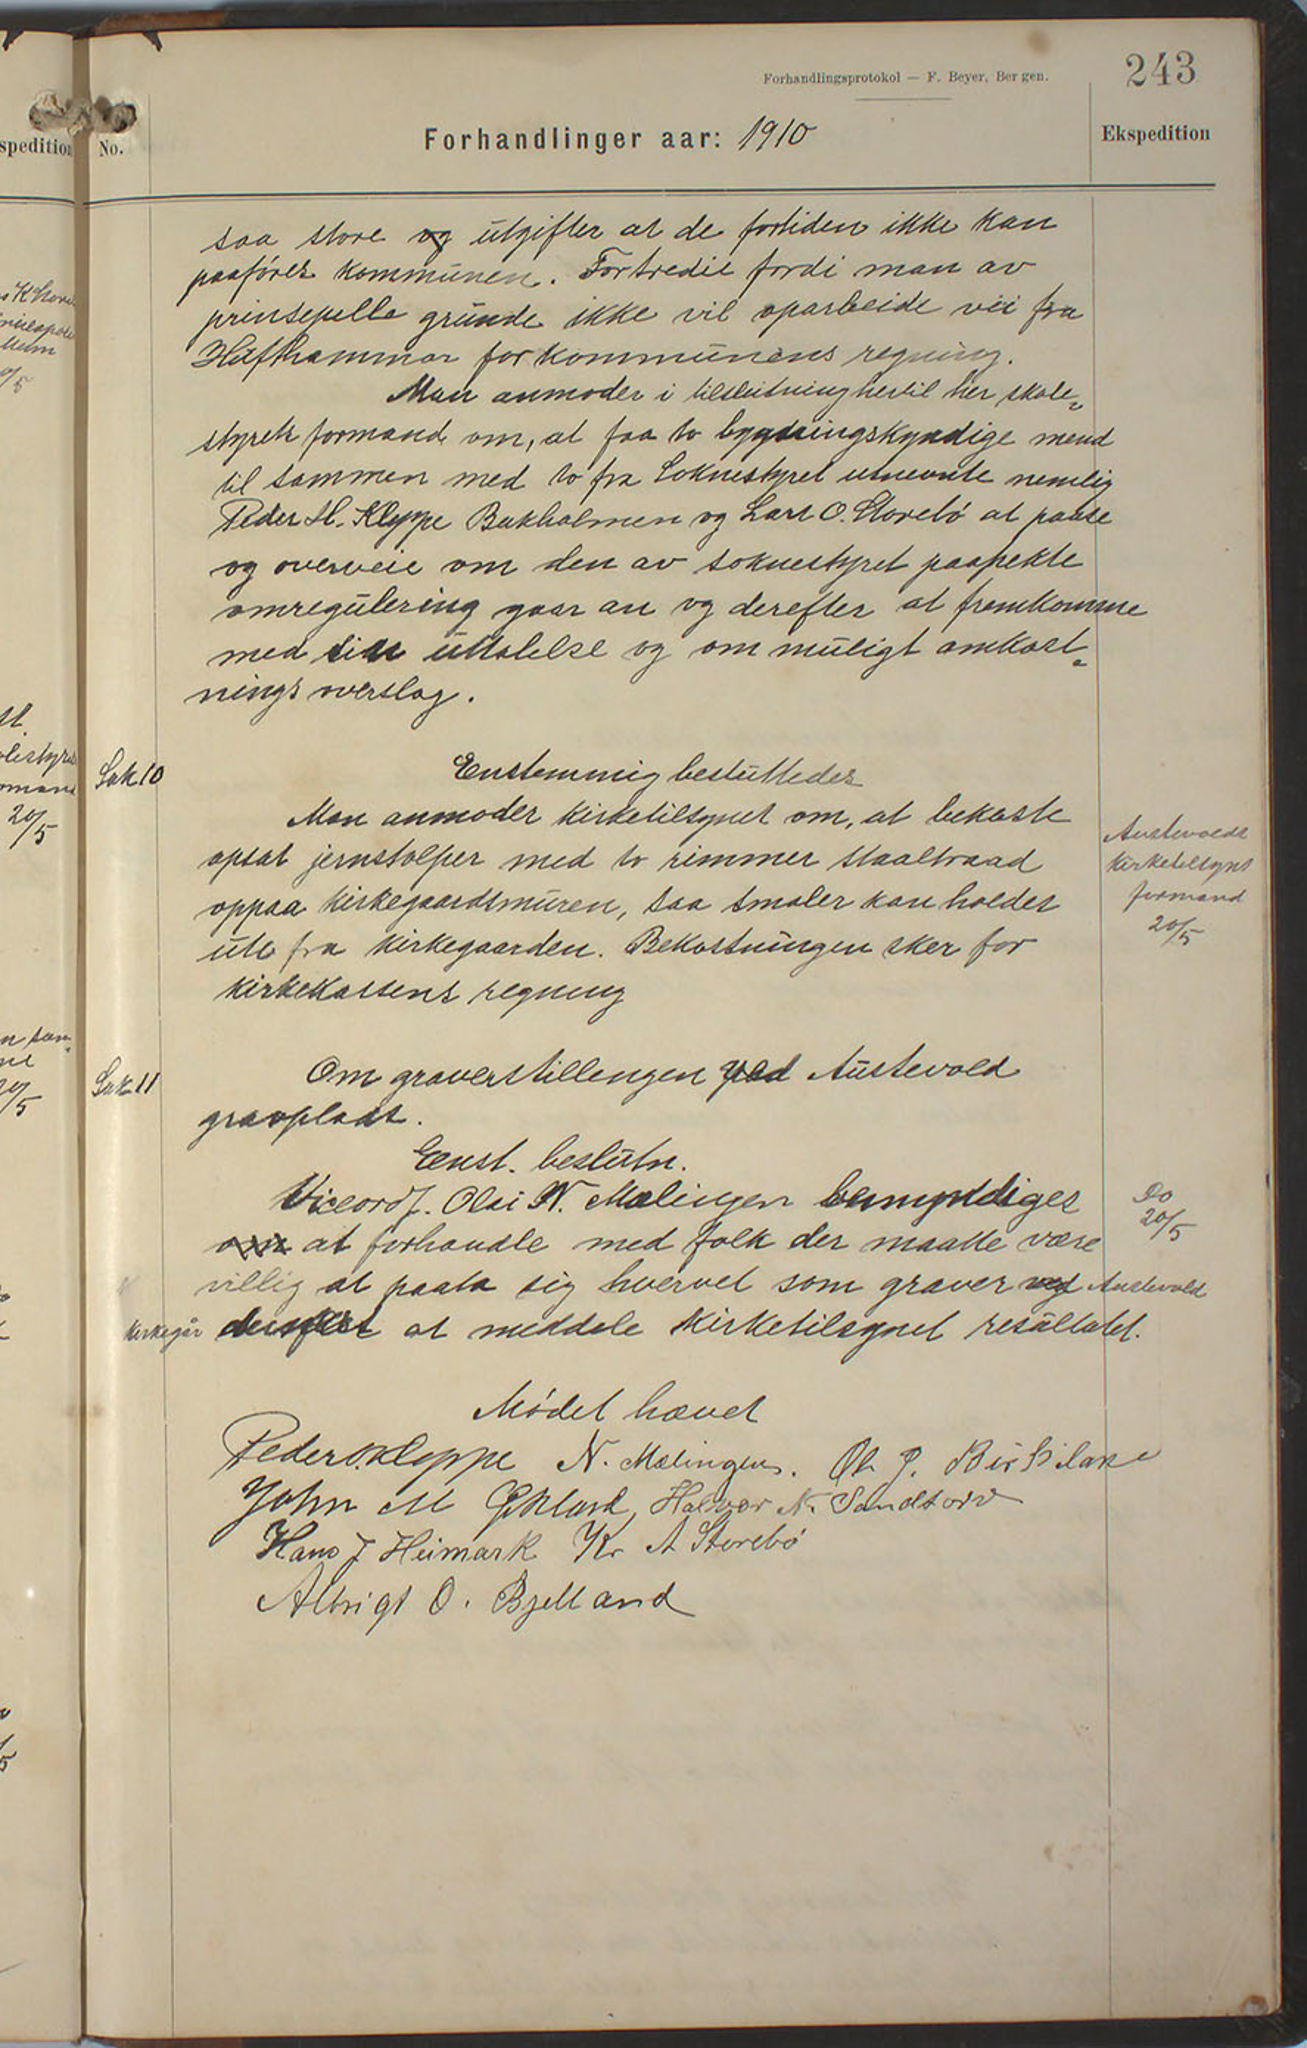 243
Forhandlingsprotokol — F. Beyer, Bergen.
Forhandlinger aar: 1910
Ekspedition
spedition No.
saa store og utgifter at de fortiden ikke kan
paaføres kommunen. Fortredie fordi man av
prinsepelle grunde ikke vil oparbeide vei fra
Hufthammar for kommunens regning.
Man anmoder i tilslutning hertil her skole-
styrets formand om, at faa to bygdningskyndige mend
til sammen med to fra Soknestyret utnevnte nemlig
Peder H. Kleppe Bakholmen og Lars O. Storebø at paase
og overveie om den av soknestyret paapekte
omregulering gaar an og derefter at fremkomme
med sin uttalelse og om muligt omkost-
nings overslag.
Sak 10
Enstemmig besluttedes
Man anmoder kirketilsynet om, at bekoste
opsat jernstolper med to rimmer staaltraad
oppaa kirkegaardsmuren, saa smaler kan holdes
ute fra kirkegaarden. Bekostningen sker for
kirkekassens regning
Austevolds
kirketilsyns
formand
20/5
Sak 11
Om graverstillengen ved Austevold
gravplads.
Enst. beslutn.
Viceordf. Olai N. Mælingen bemyndiges
om at forhandle med folk der maatte være
villig at paata sig hvervet som graver ved Austevold
kirkegår derefter at meddele kirketilsynet resultatet.
Do
20/5
Mødet hævet
Peder O. Kleppe N. Mælingen. Ole P.
John M Eklund, Halvor N. Sandtorv
Hans J Heimark Kr. A Storebø
Albrigt O. Bjelland
20/5